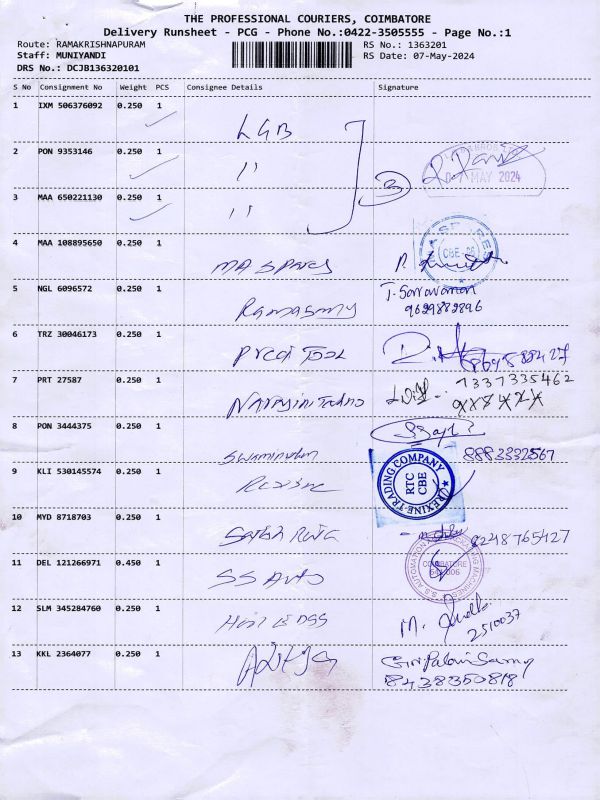 THE PROFESSIONAL COURIERS, COIMBATORE
Delivery Runsheet - PCG - Phone No.:0422-3505555 - Page No.:1
Route: RAMAKRISHNAPURAM RS No.: 1363201
Staff: MUNIYANDI RS Date: 07-May-2024
DRS No.: DCJB136320101
S No Consignment No Weight PCS Consignee Details Signature
1 IXM 506376092 0.250 1 LGB
2 PON 9353146 0.250 1 " 3
07 MAY 2024
3 MAA 650221130 0.250 1 "
4 MAA 108895650 0.250 1 MA Spares
CBE
5 NGL 6096572 0.250 1 Ramasamy T. Saravanan
9629882896
6 TRZ 30046173 0.250 1 Prcd Tool
7 PRT 27587 0.250 1 7337335462
8 PON 3444375 0.250 1 Swaminathan 8883332567
9 KLI 530145574 0.250 1 Rexine
REXINE TRADING COMPANY
RTC
CBE
10 MYD 8718703 0.250 1 8248765427
11 DEL 121266971 0.450 1 SS Auto
COIMBATORE
641 006
12 SLM 345284760 0.250 1 M.
2510037
13 KKL 2364077 0.250 1 Aditya GiriPalaniSamy
8438350818